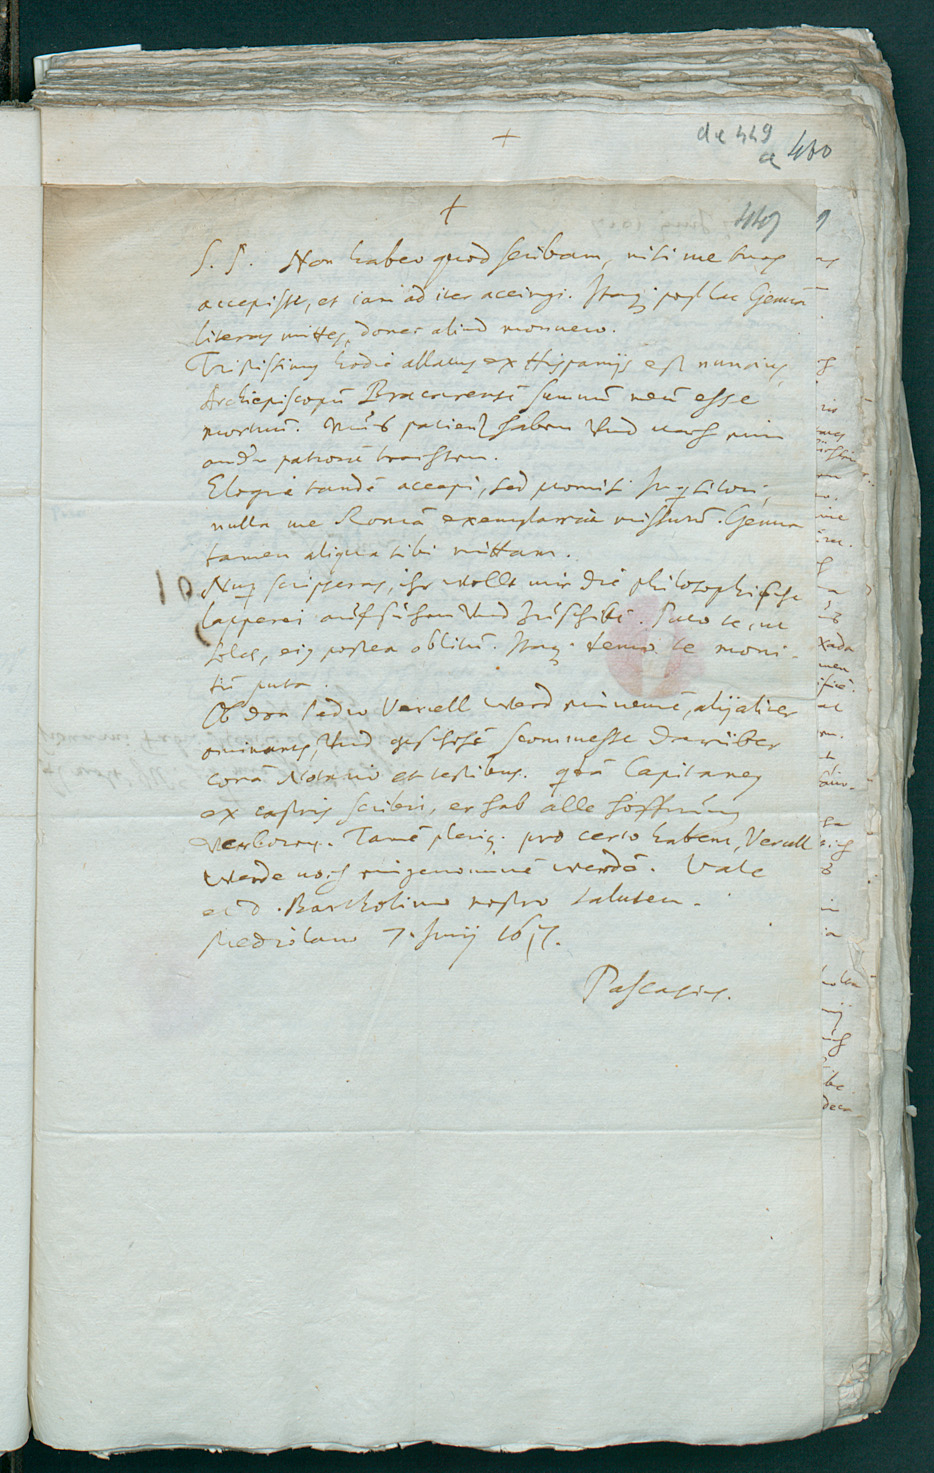 +
de 449
a 460
+
449
S. P. Non habeo quod scribam, nisi me tuas
accepisse, et iam ad iter accingi. Itaq; post hac Genuā
literas mittes, donec aliud monuero.
Tristissimus hodie allatus ex Hispanijs est nuncius,
Archiepiscopū Bracarensē summū meū esse
mortuū. Muß patientz haben und nach eim
andern patronē trachten.
Elogia tandē accepi, sed promisi
nulla me Romā exemplaria missurū. Genua
tamen aliqua tibi mittam.
Nuꝑ scripseras, ihr wollt mir die philosophische
lapperei aufsuchen und zuschickē. Puto te, ut
soles, eiꝰ postea oblitū. Itaq; denuo te moni-
tū puta.
Ob don Pedro Vercell werd einnemē, alij aliter
opinantur, und geschehē scommesse darüber
corā Notario et testibus. quidā Capitaneus
ex castris scribit, er hab alle hoffnung
verloren. Tamē pleriq; pro certo habent, Vercell
werde noch eingenommē werdē. Vale
et d. Bartholino nostro salutem.
Mediolano 7. Junij 1617.
Pascasius.